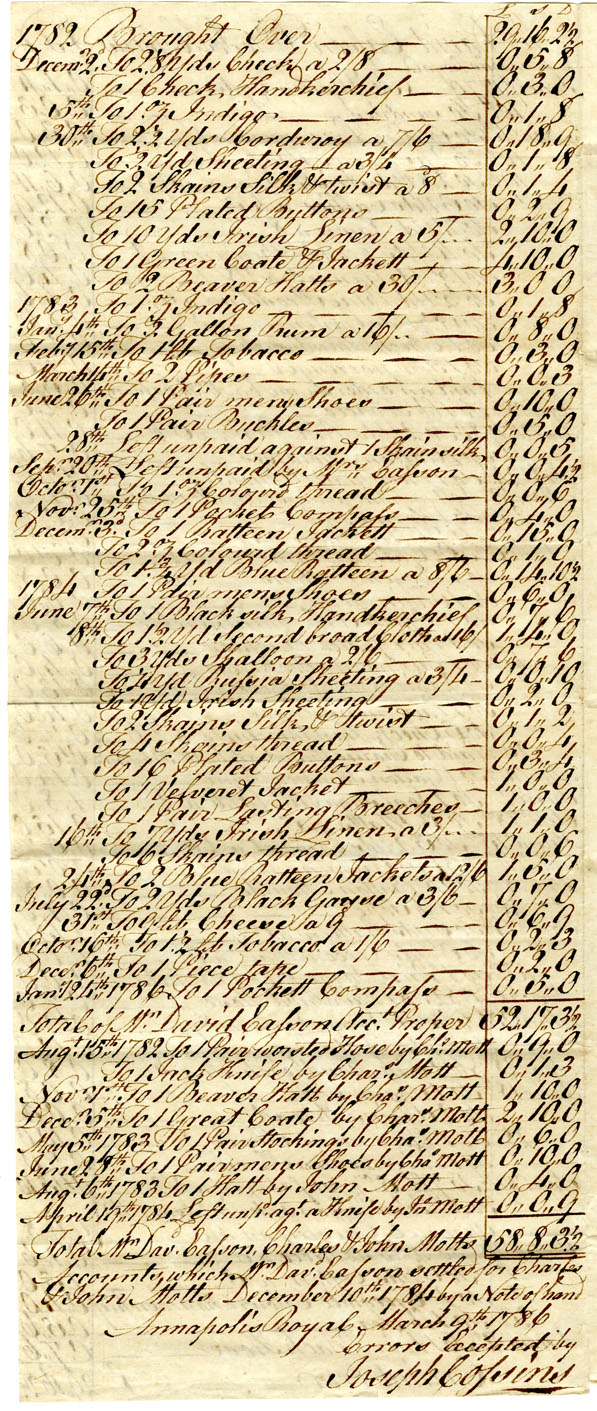 L S D
1782 Brought Over — 29..16..2½
Decemr 2d To 2⅛ Yds Check a 2/8 — 0..5..8
To 1 Check Handkerchief — 0..3..0
5th To 1 oz Indigo — 0..1..8
30th To 2½ Yds Corduroy a 7/6 — 0..18..9
To ½ Yd Sheeting a 3/4 — 0..1..8
To 2 Skains Silk & twist a 8 — 0..1..4
To 15 Plated Buttons — 0..2..9
To 10 Yds Irish Linen a 5/ — 2..10..0
To 1 Green Coate & Jackett — 4..10..0
To 2 Beaver Hatts a 30/ — 3..0..0
1783 To 1 oz Indigo — 0..1..8
Jany 4th To ½ Gallon Rum a 16/ — 0..8..0
Feby 15th To 1 lb Tobacco — 0..3..0
March 4th To 2 Pipes — 0..0..3
June 26th To 1 Pair mens Shoes — 0..10..0
To 1 Pair Buckles — 0..5..0
28th Left unpaid against 1 Skain silk — 0..0..5
Sepr 20th Left unpaid by Mrs Easson — 0..0..4½
Octor 1st To 1 oz Colourd thread — 0..0..6
Novr 25th To 1 Pocket Compass — 0..4..0
Decemr 3d To 1 Ratteen Jackett — 0..15..0
To 2 oz Colourd thread — 0..1..0
To 1¾ Yd Blue Ratteen a 8/6 — 0..14..10½
1784 To 1 Pair mens Shoes — 0..6..0
June 7th To 1 Black silk Handkerchief — 0..7..6
8th To 1½ Yd Second broad Cloth a 16/ — 1..4..0
To 3 Yds Shalloon a 2/6 — 0..7..6
To Yd Russia Sheeting a 3/4 — 0..10..10
To Yd Irish Sheeting — 0..2..0
To 2 Skains Silk & twist — 0..1..2
To 4 Skains thread — 0..0..4
To 16 Plated Buttons — 0..3..4
To 1 Velveret Jacket — 1..0..0
To 1 Pair Lasting Breeches — 1..0..0
16th To 7 Yds Irish Linen a 3/ — 1..1..0
To 6 Skains thread — 0..0..6
24th To 2 Blue Ratteen Jackets a 12/6 — 1..5..0
July 22d To 2 Yds Black Gause a 3/6 — 0..7..0
31st To 9 lb Cheese a 9 — 0..6..9
Octor 16th To 1½ lb Tobacco a 1/6 — 0..2..3
Decr 6th To 1 Piece tape — 0..2..0
Jany 24th 1786 To 1 Pockett Compass — 0..5..0
Total of Mr David Easson Acct Proper 52..17..3½
Augt 15th 1782 To 1 Pair worsted Hose by Chs Mott 0..9..0
To 1 Jack Knife by Chars Mott — 0..1..3
Novr 1st To 1 Beaver Hatt by Chas Mott — 1..10..0
Decr 5th To 1 Great Coate by Chars Mott — 2..10..0
May 5th 1783 To 1 Pair Stockings by Chas Mott 0..6..0
June 28th To 1 Pair mens Shoes by Chas Mott 0..10..0
Augt 6th 1783 To 1 Hatt by John Mott — 0..4..0
April 19th 1784 Left unpd agt a Knife by Jn Mott 0..0..9
Total Mr Davd Easson, Charles & John Motts 58..8..3½
Accounts, which Mr Davd Easson settled for Charles
& John Motts December 10th 1784 by a Note of hand
Annapolis Royal March 9th 1786
Errors Excepted by
Joseph Cossins